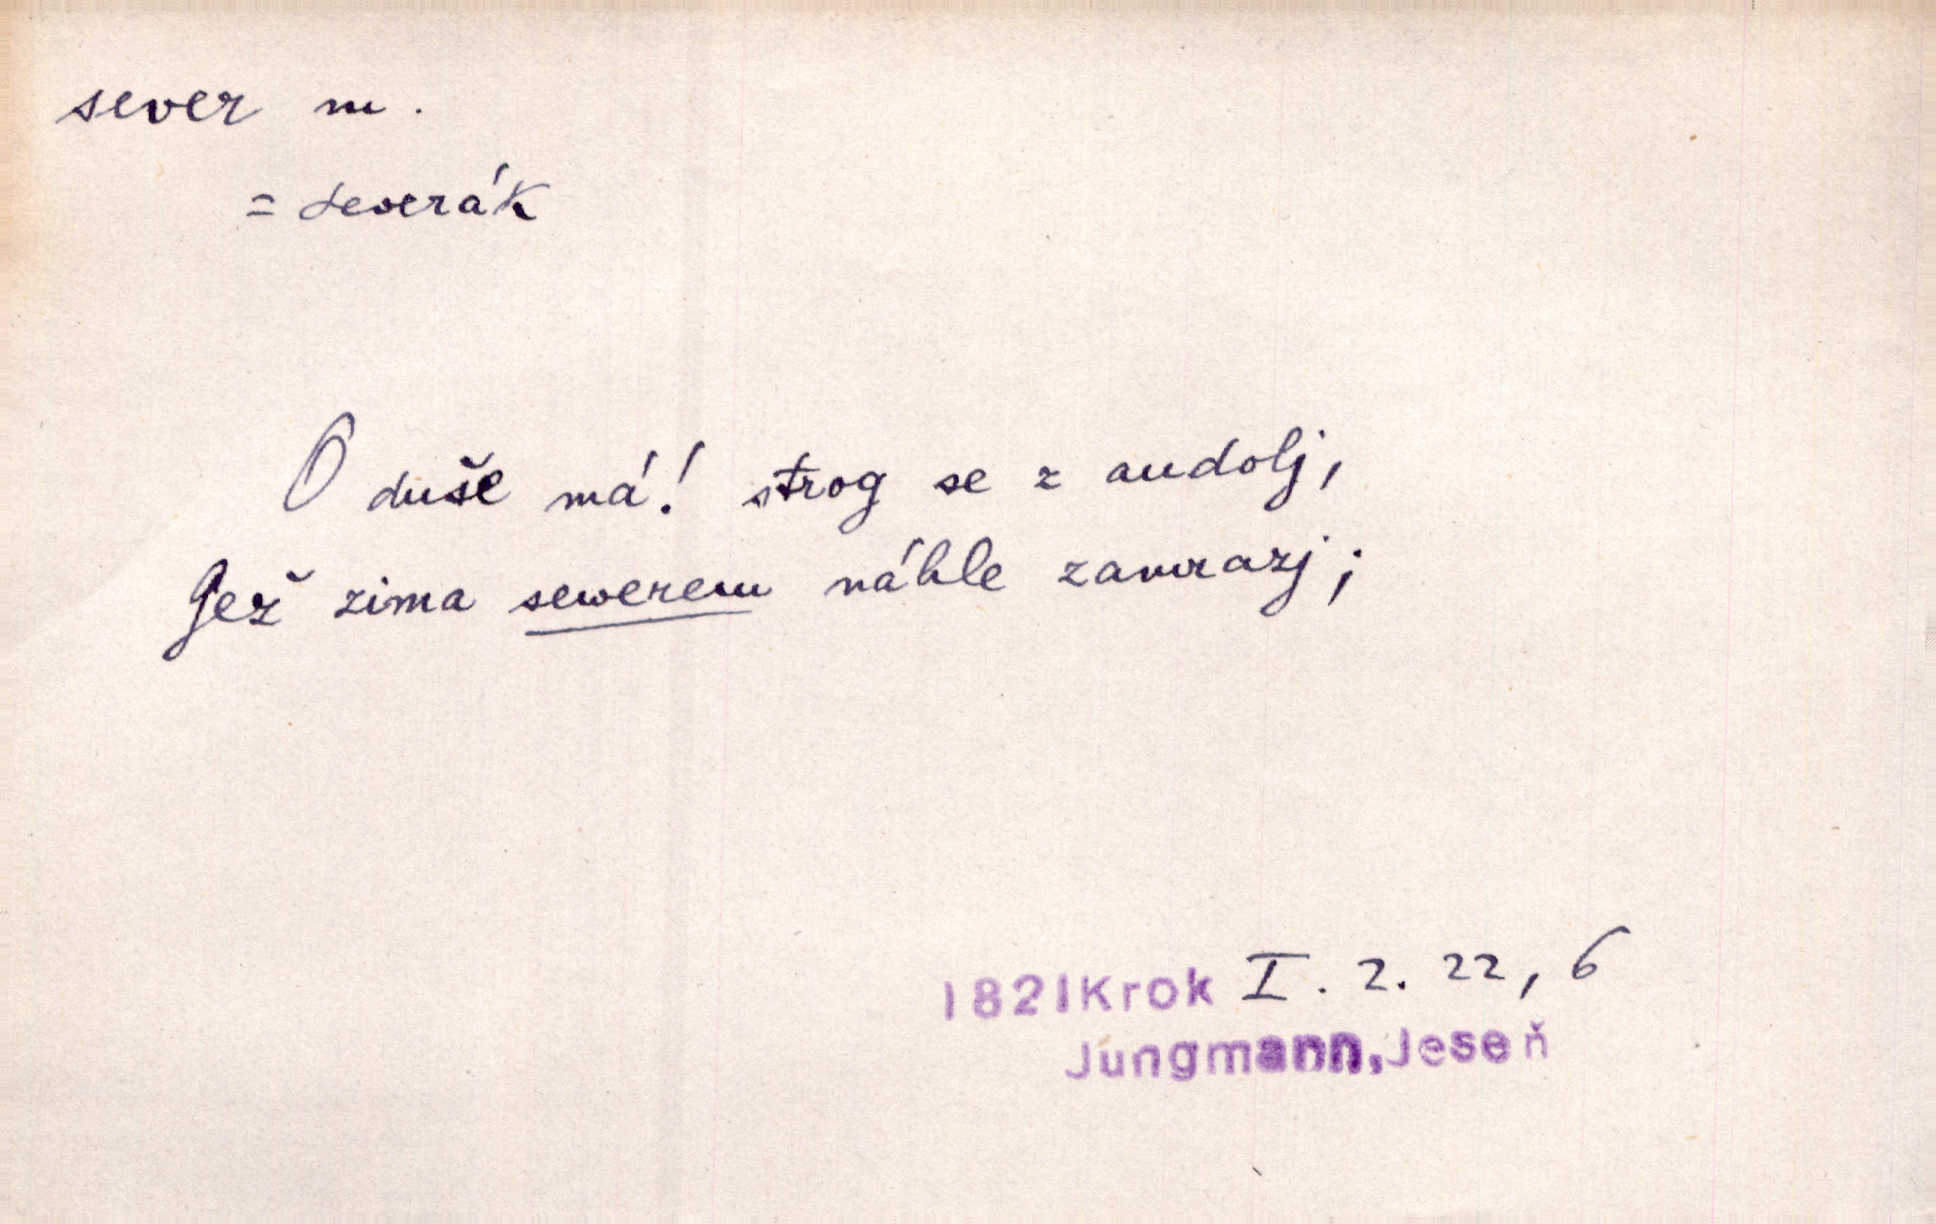 sever m.
= severák
O duše má! strog se z audolj,
Gež zima sewerem náhle zamrazj;
1821 Krok I. 2. 22, 6
Jungmann, Jeseň